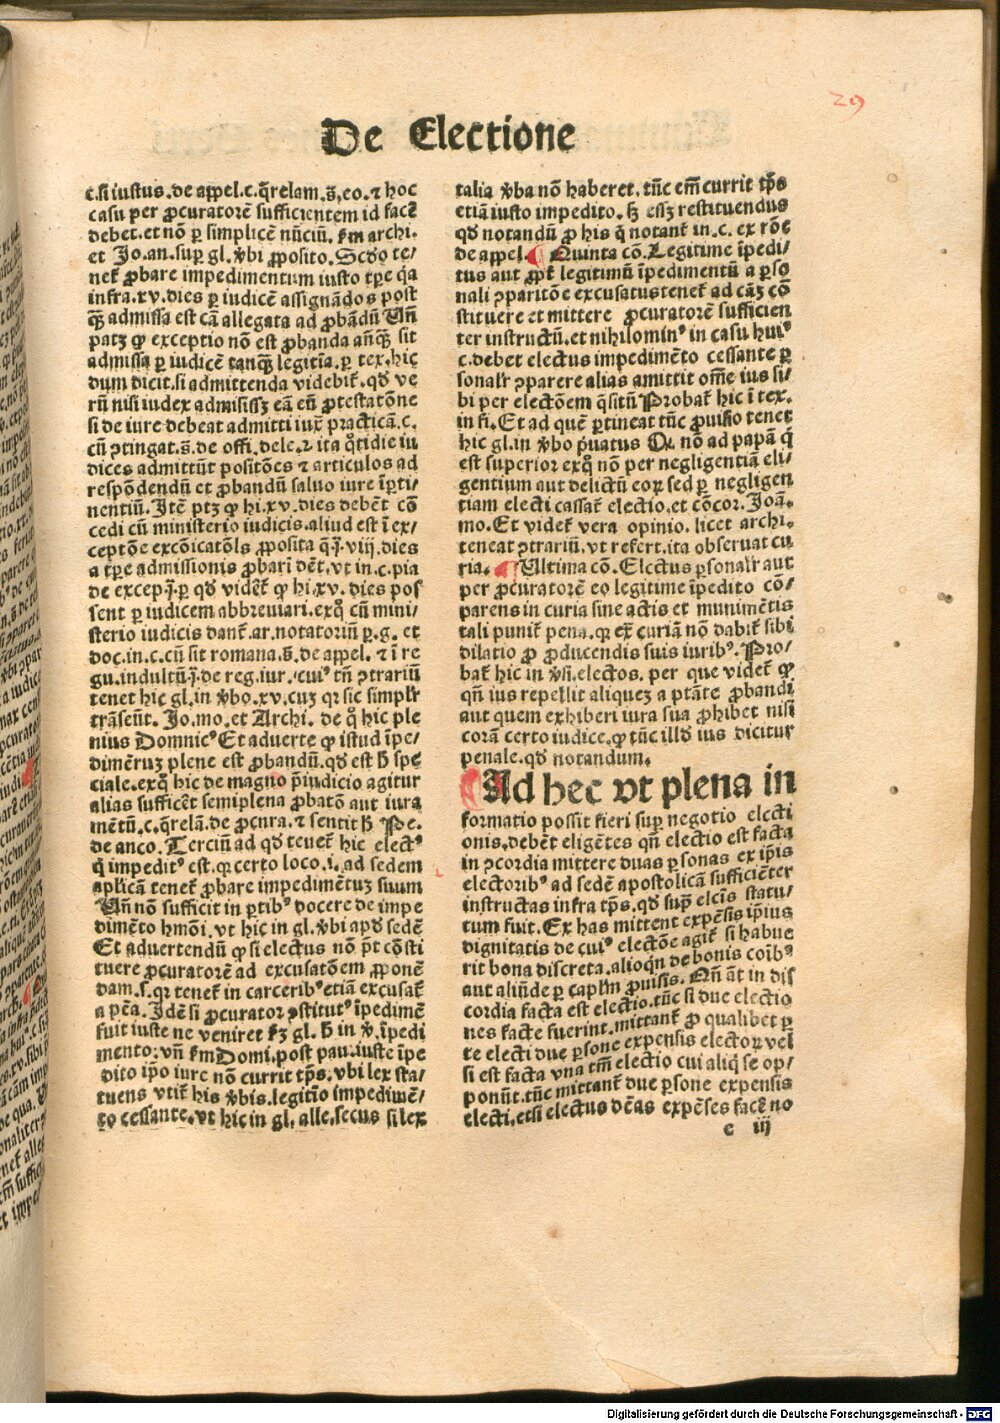 29
De Electione
c.si iustus.de appel.c.q̄relam.s̄.eo.⁊ hoc
casu per ꝓcuratorē sufficientem id facē
debet.et nō ꝑ simplicē nūciū. ẜm archi.
et Jo.an.suꝑ gl.v̄bi ꝓposito. Scd̓o te/
net᷑ ꝓbare impedimentum iusto tꝑe q̄a
infra.xv.dies ꝑ iudicē assignādos post
qꝫ̄ admissa est cā allegata ad ꝓbādū Un̄
patꝫ ꝙ exceptio nō est ꝓbanda an̄qꝫ̄ sit
admissa ꝑ iudicē tanqꝫ̄ legitīa.ꝑ tex.hic
dum dicit.si admittenda videbit᷑.qd̓ ve
rū nisi iudex admisissꝫ eā cū ꝓtestatōne
si de iure debeat admitti iux̄ practicā.c.
cū ꝯtingat.s̄.de offi.dele.⁊ ita q̄tidie iu
dices admittūt positōes ⁊ articulos ad
respōdendū et ꝓbandū saluo iure īꝑti/
nentiū. Itē ptꝫ ꝙ hi.xv.dies debēt cō
cedi cū ministerio iudicis.aliud est ī ex/
ceptōe excōicatōis ꝓposita q̄ ī.viij.dies
a tꝑe admissionis ꝓbari dēt.vt in.c.pia
de excep.j̄.ꝑ qd̓ videt᷑ ꝙ hi.xv.dies pos
sent ꝑ iudicem abbreuiari.exq̊ cū mini/
sterio iudicis dant᷑.ar.notatoriū ꝑ.g. et
doc.in.c.cū sit romana.s̄.de appel. ⁊ ī re
gu.indultū.j̄.de reg.iur./cui⁹ tn̄ ꝯtrariū
tenet hic gl.in v̄bo.xv.cuꝫ qr̄ sic simplr̄
trāseūt. Jo.mo.et Archi. de q̊ hic ple
nius Domnic⁹ Et aduerte ꝙ istud īpe/
dimētuꝫ plene est ꝓbandū.qd̓ est h̄ spe
ciale.exq̊ hic de magno p̄iudicio agitur
alias sufficēt semiplena ꝓbatō aut iura
mētū.c.q̄relā.de ꝓcura.⁊ sentit h̄ Pe.
de anco. Terciū ad qd̓ tenet᷑ hic elect⁹
q̇ impedit⁹ est.qr̄ certo loco.i.ad sedem
aplicā tenet᷑ ꝓbare impedimētuꝫ suum
Un̄ nō sufficit in ꝑtib⁹ docere de impe
dimēto hmōi.vt hic in gl.v̄bi apd̓ sedē
Et aduertendū ꝙ si electus nō p̄t cōsti
tuere ꝓcuratorē ad excusatōem ꝓponē
dam.s.qr̄ tenet᷑ in carcerib⁹ etiā excusat᷑
a pēa. Idē si ꝓcurator ꝯstitut⁹ īpedimē
fuit iuste ne veniret ẜꝫ gl. h̄ in v̄.īpedi
mento;vn̄ ẜm Domi.post pau.iuste īpe
dito ip̄o iure nō currit tp̄s.vbi lex sta/
tuens vtit᷑ his v̄bis.legitīo impedimē/
to cessante.vt hic in gl.alle.secus si lex
talia v̄ba nō haberet.tūc em̄ currit tp̄s
etiā iusto impedito.ẜꝫ essꝫ restituendus
qd̓ notandū ꝓ his q̄ notant᷑ in.c. ex rōe
de appel. Quinta cō. Legitime īpedi/
tus aut ꝓpt᷑ legitimū īpedimentū a ꝑso
nali ꝯparitōe excusatus tenet᷑ ad cāꝫ cō
stituere et mittere ꝓcuratorē sufficien
ter instructū.et nihilomin⁹ in casu hui⁹
c.debet electus impedimēto cessante ꝑ
sonalr̄ ꝯparere alias amittit om̄e ius si/
bi per electōem q̄situ Probat᷑ hic ī tex.
in fi. Et ad quē ꝑtineat tūc ꝓuisio tenet
hic gl.in v̄bo p̄uatus Qr̄ nō ad papā q̇
est superior exq̊ nō per negligentiā eli/
gentium aut delictū eoꝝ sed ꝑ negligen
tiam electi cassat᷑ electio.et cōcor. Joā.
mo. Et videt᷑ vera opinio. licet archi.
teneat ꝯtrariū.vt refert.ita obseruat cu
ria. Ultima cō. Electus ꝑsonalr̄ aut
per ꝓcuratorē eo legitime īpedito cō/
parens in curia sine actis et munimētis
tali punit᷑ pena.qr̄ ex̄ curiā nō dabit᷑ sibi
dilatio ꝓ ꝓducendis suis iurib⁹. Pro/
bat᷑ hic in v̄si.electos. per que videt᷑ ꝙ
qn̄ ius repellit aliqueꝫ a ptāte ꝓbandi
aut quem exhiberi iura sua ꝓhibet nisi
corā certo iudice.ꝙ tūc illd̓ ius dicitur
penale.qd̓ notandum.
Ad hec vt plena in
formatio possit fieri suꝑ negotio electi
onis.debēt eligētes qn̄ electio est facta
in ꝯcordia mittere duas ꝑsonas ex ip̄is
electorib⁹ ad sedē apostolicā sufficiēter
instructas infra tp̄s.qd̓ suꝑ elcīs statu/
tum fuit. Ex has mittent expēsis ip̄ius
dignitatis de cui⁹ electōe agit᷑ si habue
rit bona discreta.alioq̇n de bonis coīb⁹
aut aliūde ꝑ caplm̄ ꝓuisis. Qn̄ āt in dis
cordia facta est electio.tūc si due electio
nes facte fuerint.mittant᷑ ꝓ qualibet ꝑ
te electi due ꝑsone expensis electoꝝ vel
si est facta vna tm̄ electio cui aliq̇ se op/
ponūt.tūc mittant᷑ due ꝑsone expensis
electi.etsi electus dēas expēses facē no
e iij
Digitalisierung gefördert durch die Deutsche Forschungsgemeinschaft - DFG